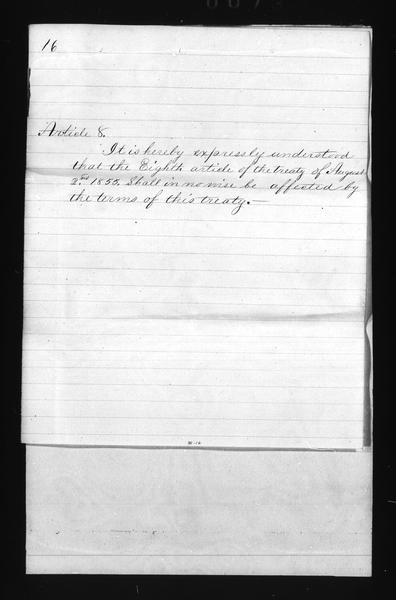 16
Article 8.
It is hereby expressly understood
that the Eighth article of the treaty of August
2nd 1855, Shall in no wise be affected by
the terms of this treaty.—